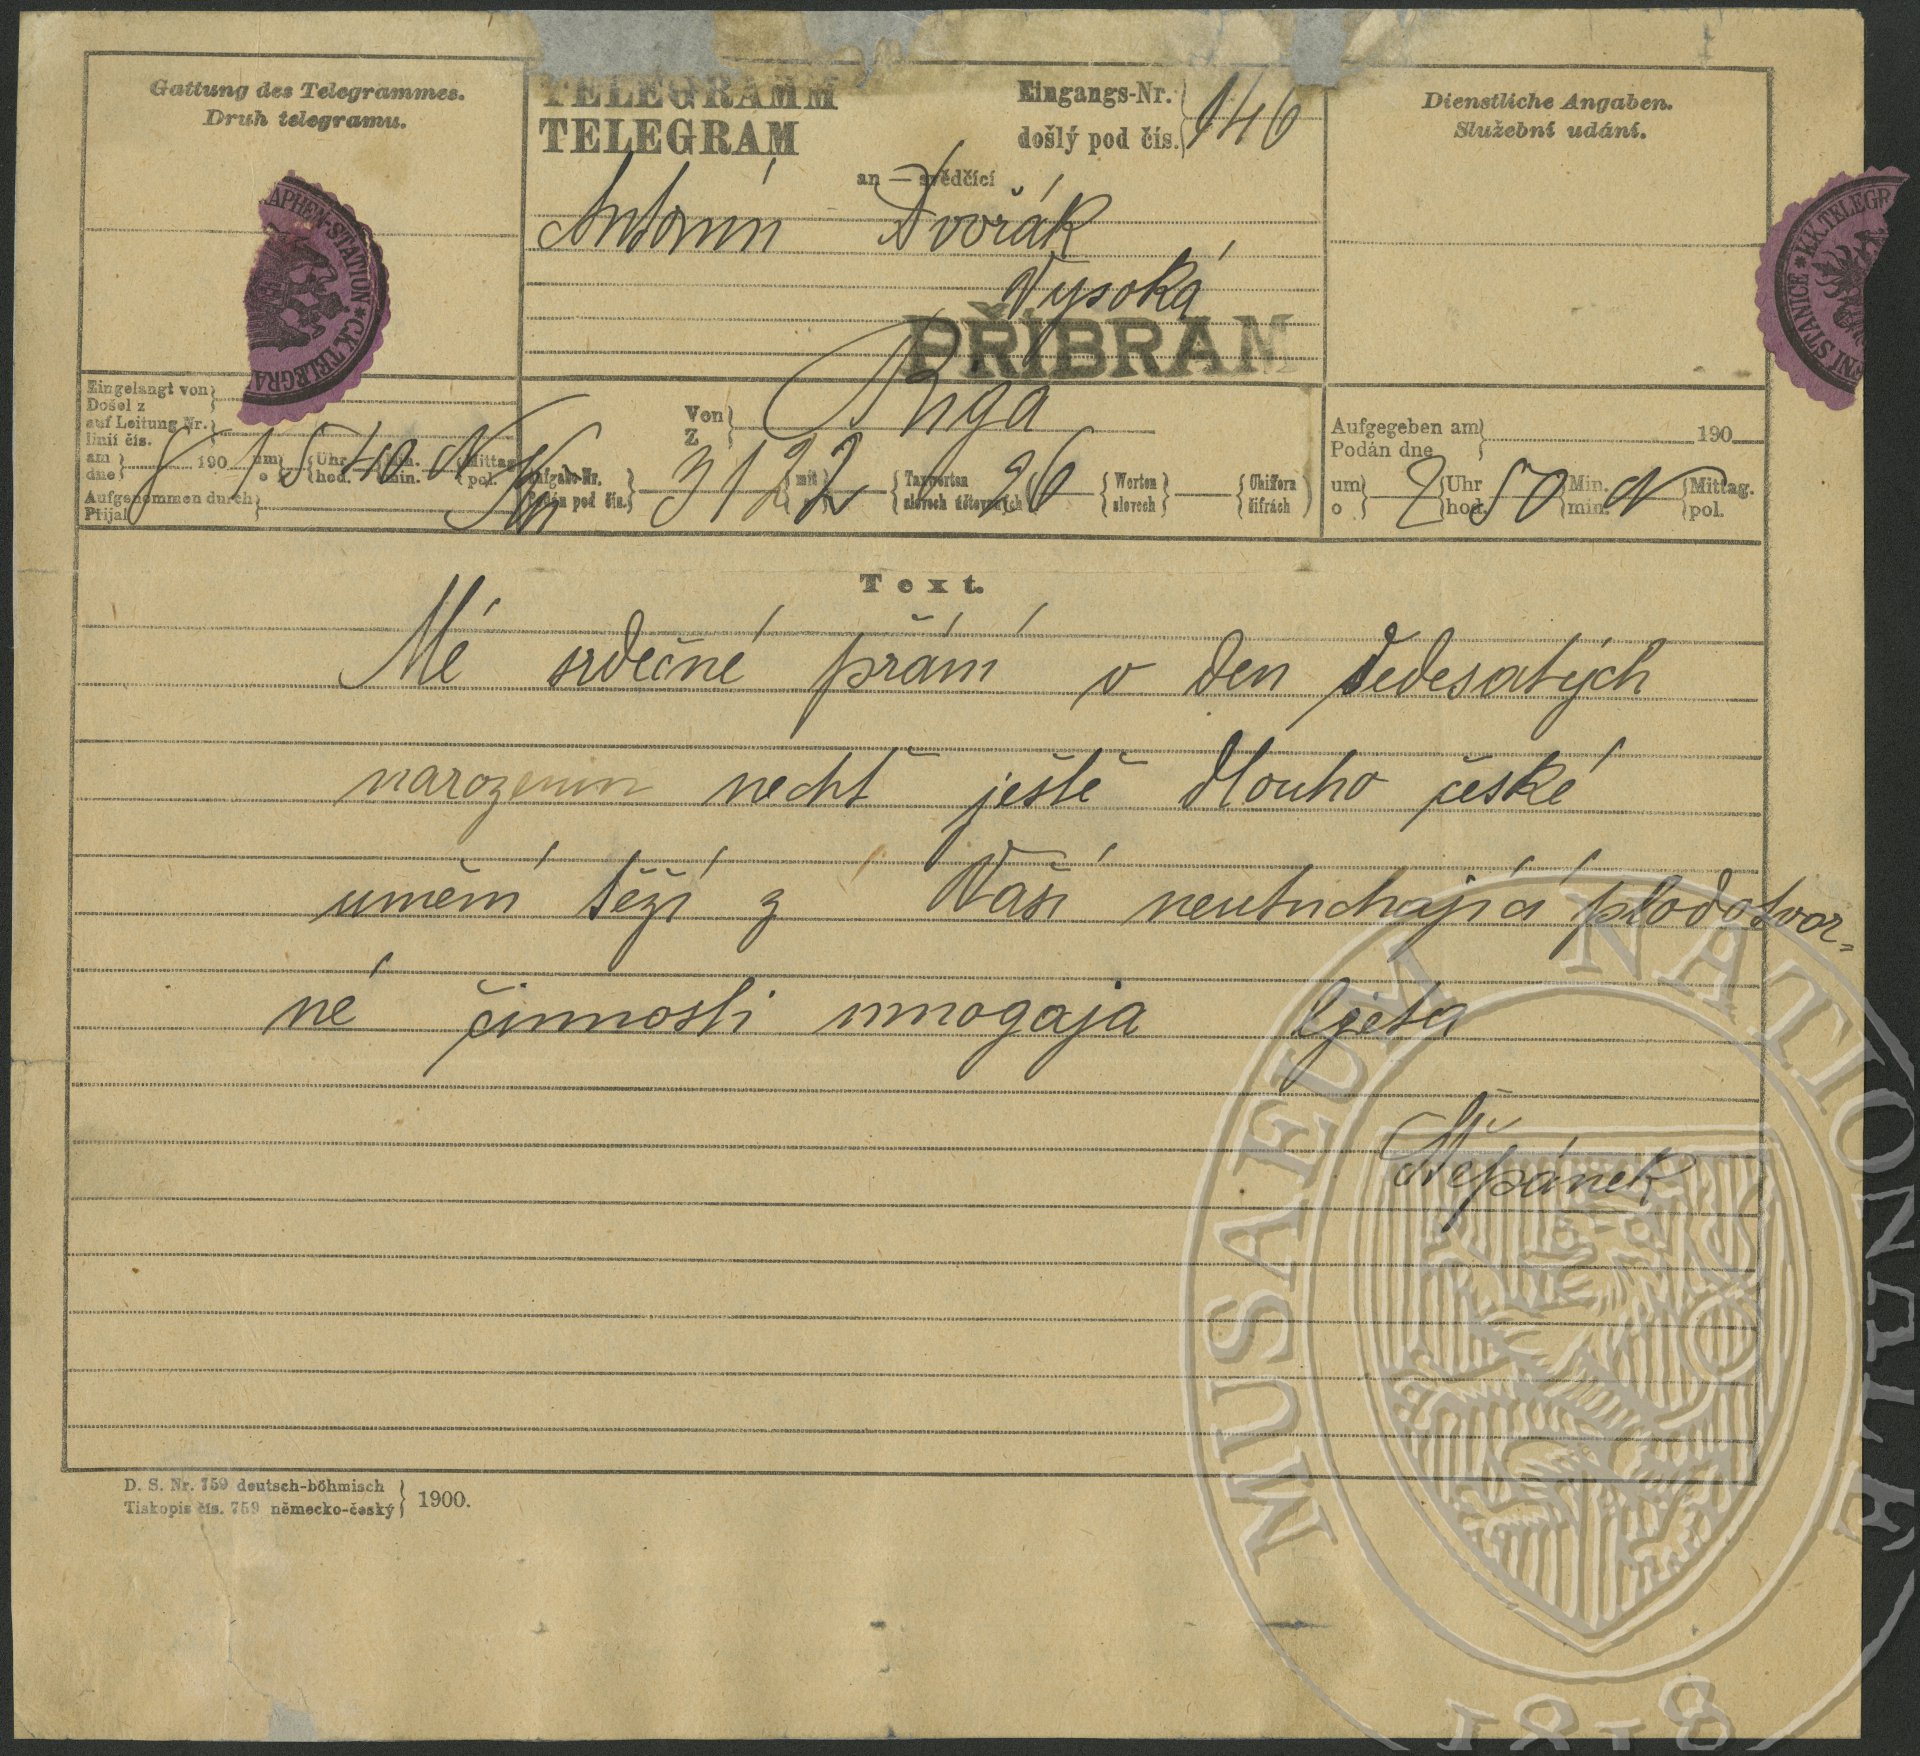 Gattung des Telegrammes.
Druh telegramu.
TELEGRAMM
TELEGRAM
Eingangs-Nr.
došlý pod čís. 146
an — svědčící
Antonín Dvořák
Vysoká
PŘÍBRAM
Dienstliche Angaben.
Služební udání.
APHEN-STATION * C.K. TELEGRA
NÍ STANICE * K.K. TELEGR
Eingelangt von
Došel z
auf Leitung Nr.
linií čís.
am
dne 8 190 1 um
o 5 Uhr
hod. 40 Min.
min. N Mittag
pol.
Aufgenommen durch
Přijal
Von
Z Riga
Aufgabe-Nr.
Podán pod čís. 3122 mit Taxworten
slovech účtovaných 26 Worten
slovech Chiffern
čifrách
Aufgegeben am
Podán dne 190
um
o 2 Uhr
hod. 50 Min.
min. N Mittag.
pol.
Text.
Mé srdečné přání v den šedesatých
narozenin nechť ještě dlouho české
umění těží z Vaší neutuchající plodotvor=
né činnosti mnogaja ljeta
Štěpánek
D. S. Nr. 759 deutsch-böhmisch
Tiskopis čís. 759 německo-český 1900.
MUSAEUM NATIONALE
1818